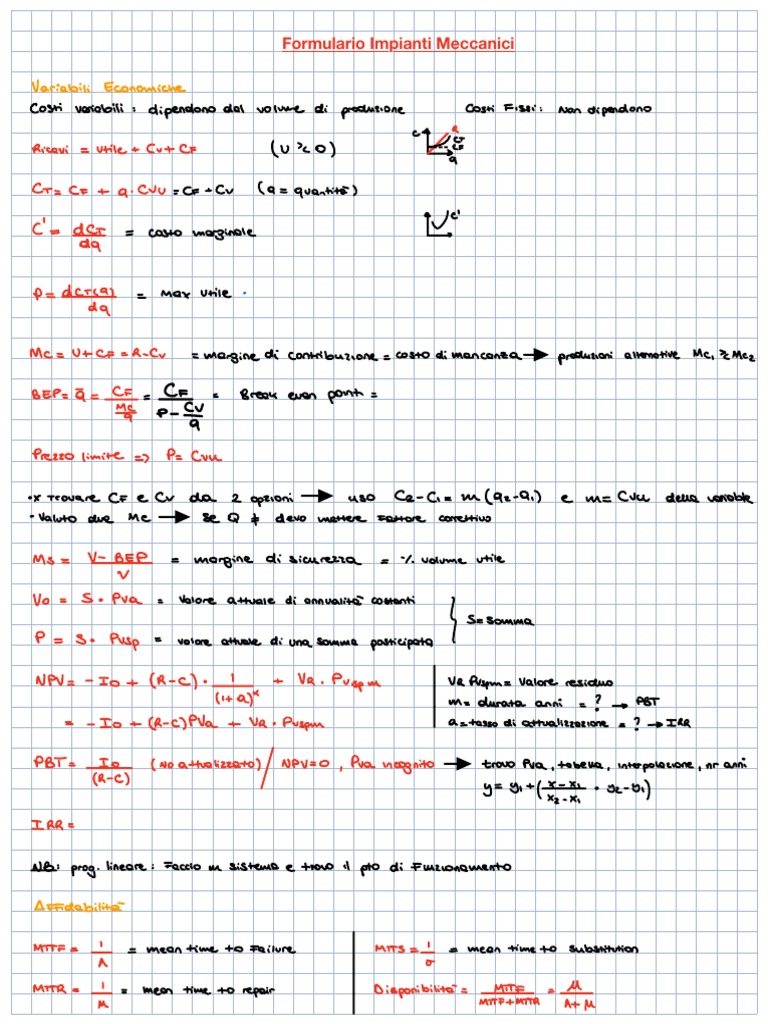 Formulario Impianti Meccanici
Variabili Economiche
Costi variabili : dipendono dal volume di produzione Costi Fissi : Non dipendono
Ricavi = utile + Cv + CF (U ≷ 0) C R CT CF Q
CT = CF + q · CVU = CF + CV (q = quantità)
C' = dCT/dq = costo marginale C'
P = dCT(q)/dq = max utile
Mc = U + CF = R - Cv = margine di contribuzione = costo di mancanza → produzioni alternative Mc1 ≥ Mc2
BEP = q̄ = CF/(Mc/q) = CF/(P - Cv/q) = Break even point =
Prezzo limite => P = Cvu
· x Trovare CF e Cv da 2 opzioni → uso C2 - C1 = m (q2 - q1) e m = Cvu della variabile
- Valuto due Mc → Se Q ≠ devo mettere fattore correttivo
Ms = (V - BEP)/V = margine di sicurezza = % volume utile
Vo = S · Pva = Valore attuale di annualità costanti
P = S · Pvsp = valore attuale di una somma posticipata
S = Somma
NPV = - Io + (R - C) · 1/(1+a)^x + VR · Pvspm
= - Io + (R - C) PVa + VR · Pvspm
VR Pvspm = Valore residuo
m = durata anni = ? → PBT
a = tasso di attualizzazione = ? → IRR
PBT = Io/(R - C) (No attualizzato) / NPV = 0 , Pva incognito → trovo Pva , tabella , interpolazione , nr anni
y = y1 + (x - x1/x2 - x1 · y2 - y1)
IRR =
NB : prog. lineare : Faccio un sistema e trovo il pto di Funzionamento
Affidabilità
MTTF = 1/λ = mean time to Failure MTTS = 1/σ = mean time to substitution
MTTR = 1/μ = mean time to repair Disponibilità = MTTF/(MTTF + MTTR) = μ/(λ + μ)